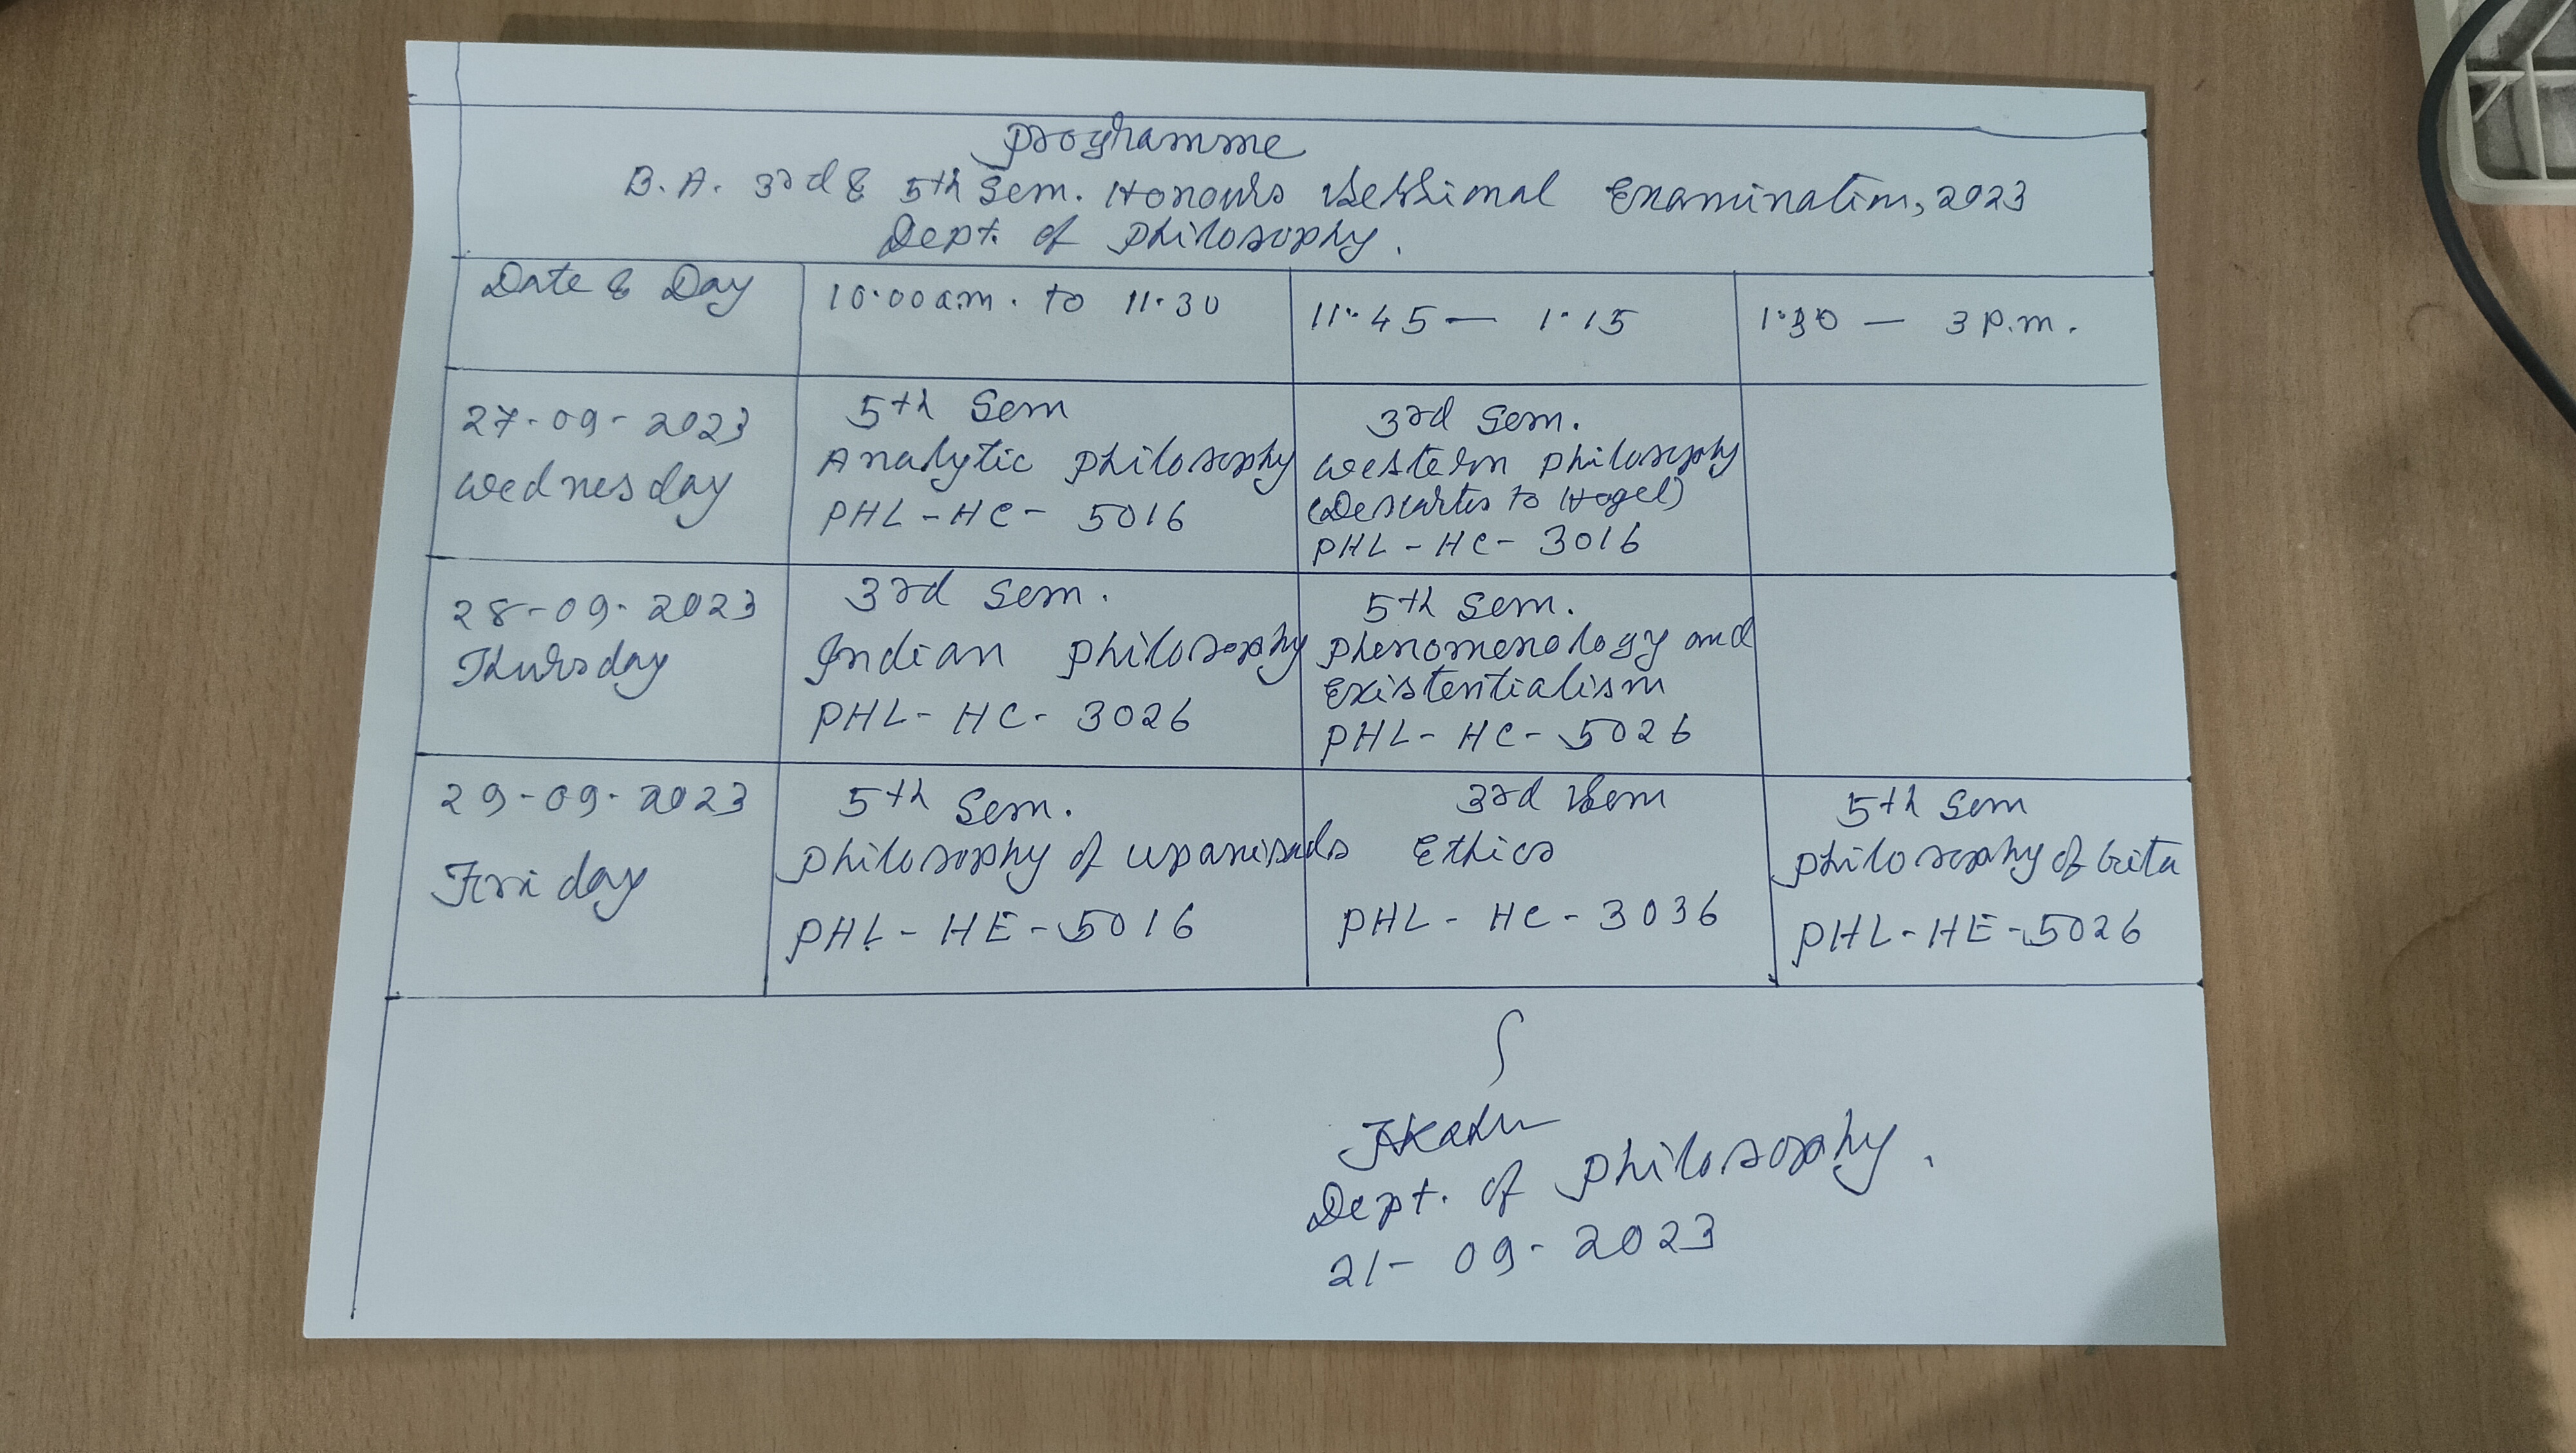 Programme
B.A. 3rd & 5th Sem. Honours Sessional Examination, 2023
Dept. of Philosophy.
Date & Day
10.00 a.m. to 11.30
11.45 — 1.15
1.30 — 3 P.m.
27-09-2023
Wednesday
5th Sem
Analytic Philosophy
PHL-HC-5016
3rd Sem.
Western Philosophy
(Descartes to Hegel)
PHL-HC-3016
28-09-2023
Thursday
3rd Sem.
Indian Philosophy
PHL-HC-3026
5th Sem.
Phenomenology and
Existentialism
PHL-HC-5026
29-09-2023
Friday
5th Sem.
Philosophy of Upanisads
PHL-HE-5016
3rd Sem
Ethics
PHL-HC-3036
5th Sem
Philosophy of Gita
PHL-HE-5026
Dept. of Philosophy.
21-09-2023